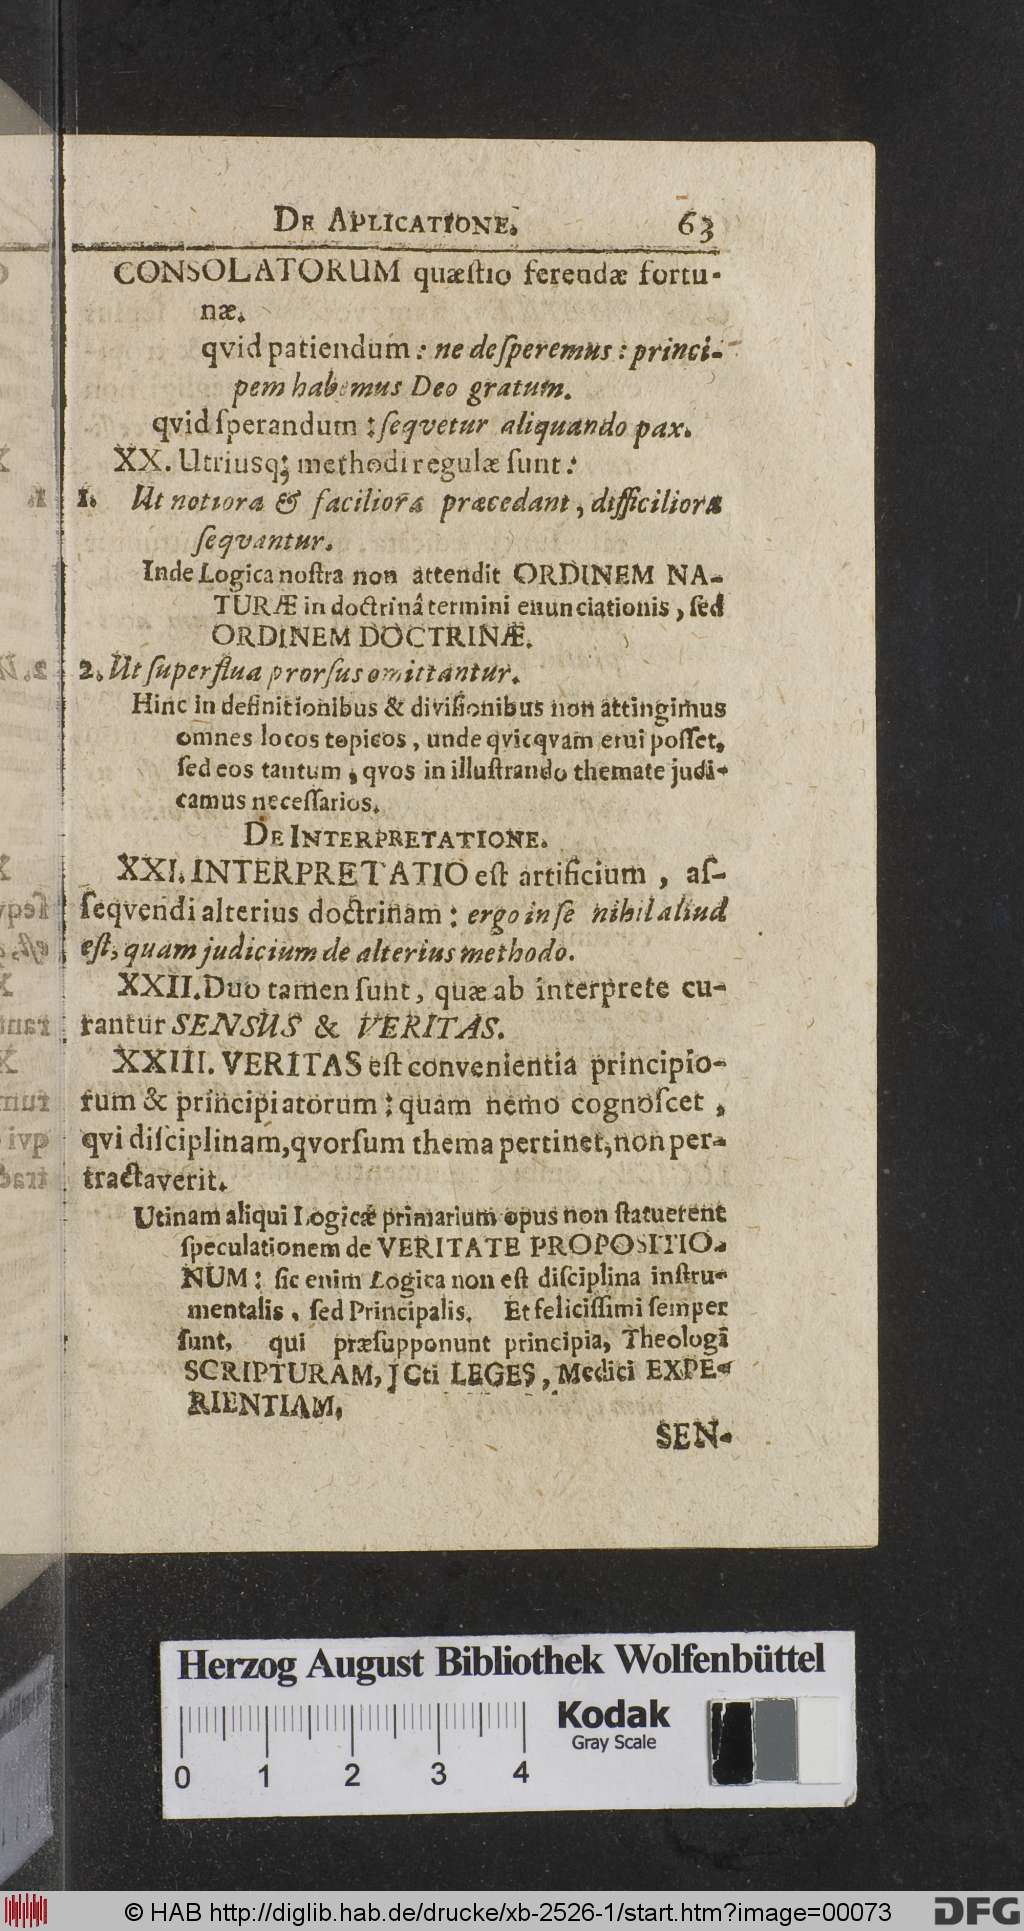 DE APLICATIONE. 63
CONSOLATORUM quæſtio ferendæ fortu-
næ.
qvid patiendum: ne deſperemus: princi-
pem habemus Deo gratum.
qvid ſperandum: ſeqvetur aliquando pax.
XX. Utriusq; methodi regulæ ſunt:
1. Ut notiora & faciliora præcedant, difficiliora
ſeqvantur.
Inde Logica noſtra non attendit ORDINEM NA-
TURÆ in doctrinâ termini enunciationis, ſed
ORDINEM DOCTRINÆ.
2. Ut ſuperflua prorſus omittantur.
Hinc in definitionibus & diviſionibus non attingimus
omnes locos topicos, unde qvicqvam erui poſſet,
ſed eos tantum, qvos in illuſtrando themate judi-
camus neceſſarios.
DE INTERPRETATIONE.
XXI. INTERPRETATIO eſt artificium, aſ-
ſeqvendi alterius doctrinam: ergo in ſe nihil aliud
eſt, quam judicium de alterius methodo.
XXII. Duo tamen ſunt, quæ ab interprete cu-
rantur SENSUS & VERITAS.
XXIII. VERITAS eſt convenientia principio-
rum & principiatorum: quam nemo cognoſcet,
qvi diſciplinam, qvorſum thema pertinet, non per-
tractaverit.
Utinam aliqui Logicæ primarium opus non ſtatuerent
ſpeculationem de VERITATE PROPOSITIO-
NUM: ſic enim Logica non eſt diſciplina inſtru-
mentalis, ſed Principalis. Et feliciſſimi ſemper
ſunt, qui præſupponunt principia, Theologi
SCRIPTURAM, JCti LEGES, Medici EXPE-
RIENTIAM.
SEN-
Herzog August Bibliothek Wolfenbüttel
Kodak
Gray Scale
0 1 2 3 4
© HAB http://diglib.hab.de/drucke/xb-2526-1/start.htm?image=00073
DFG